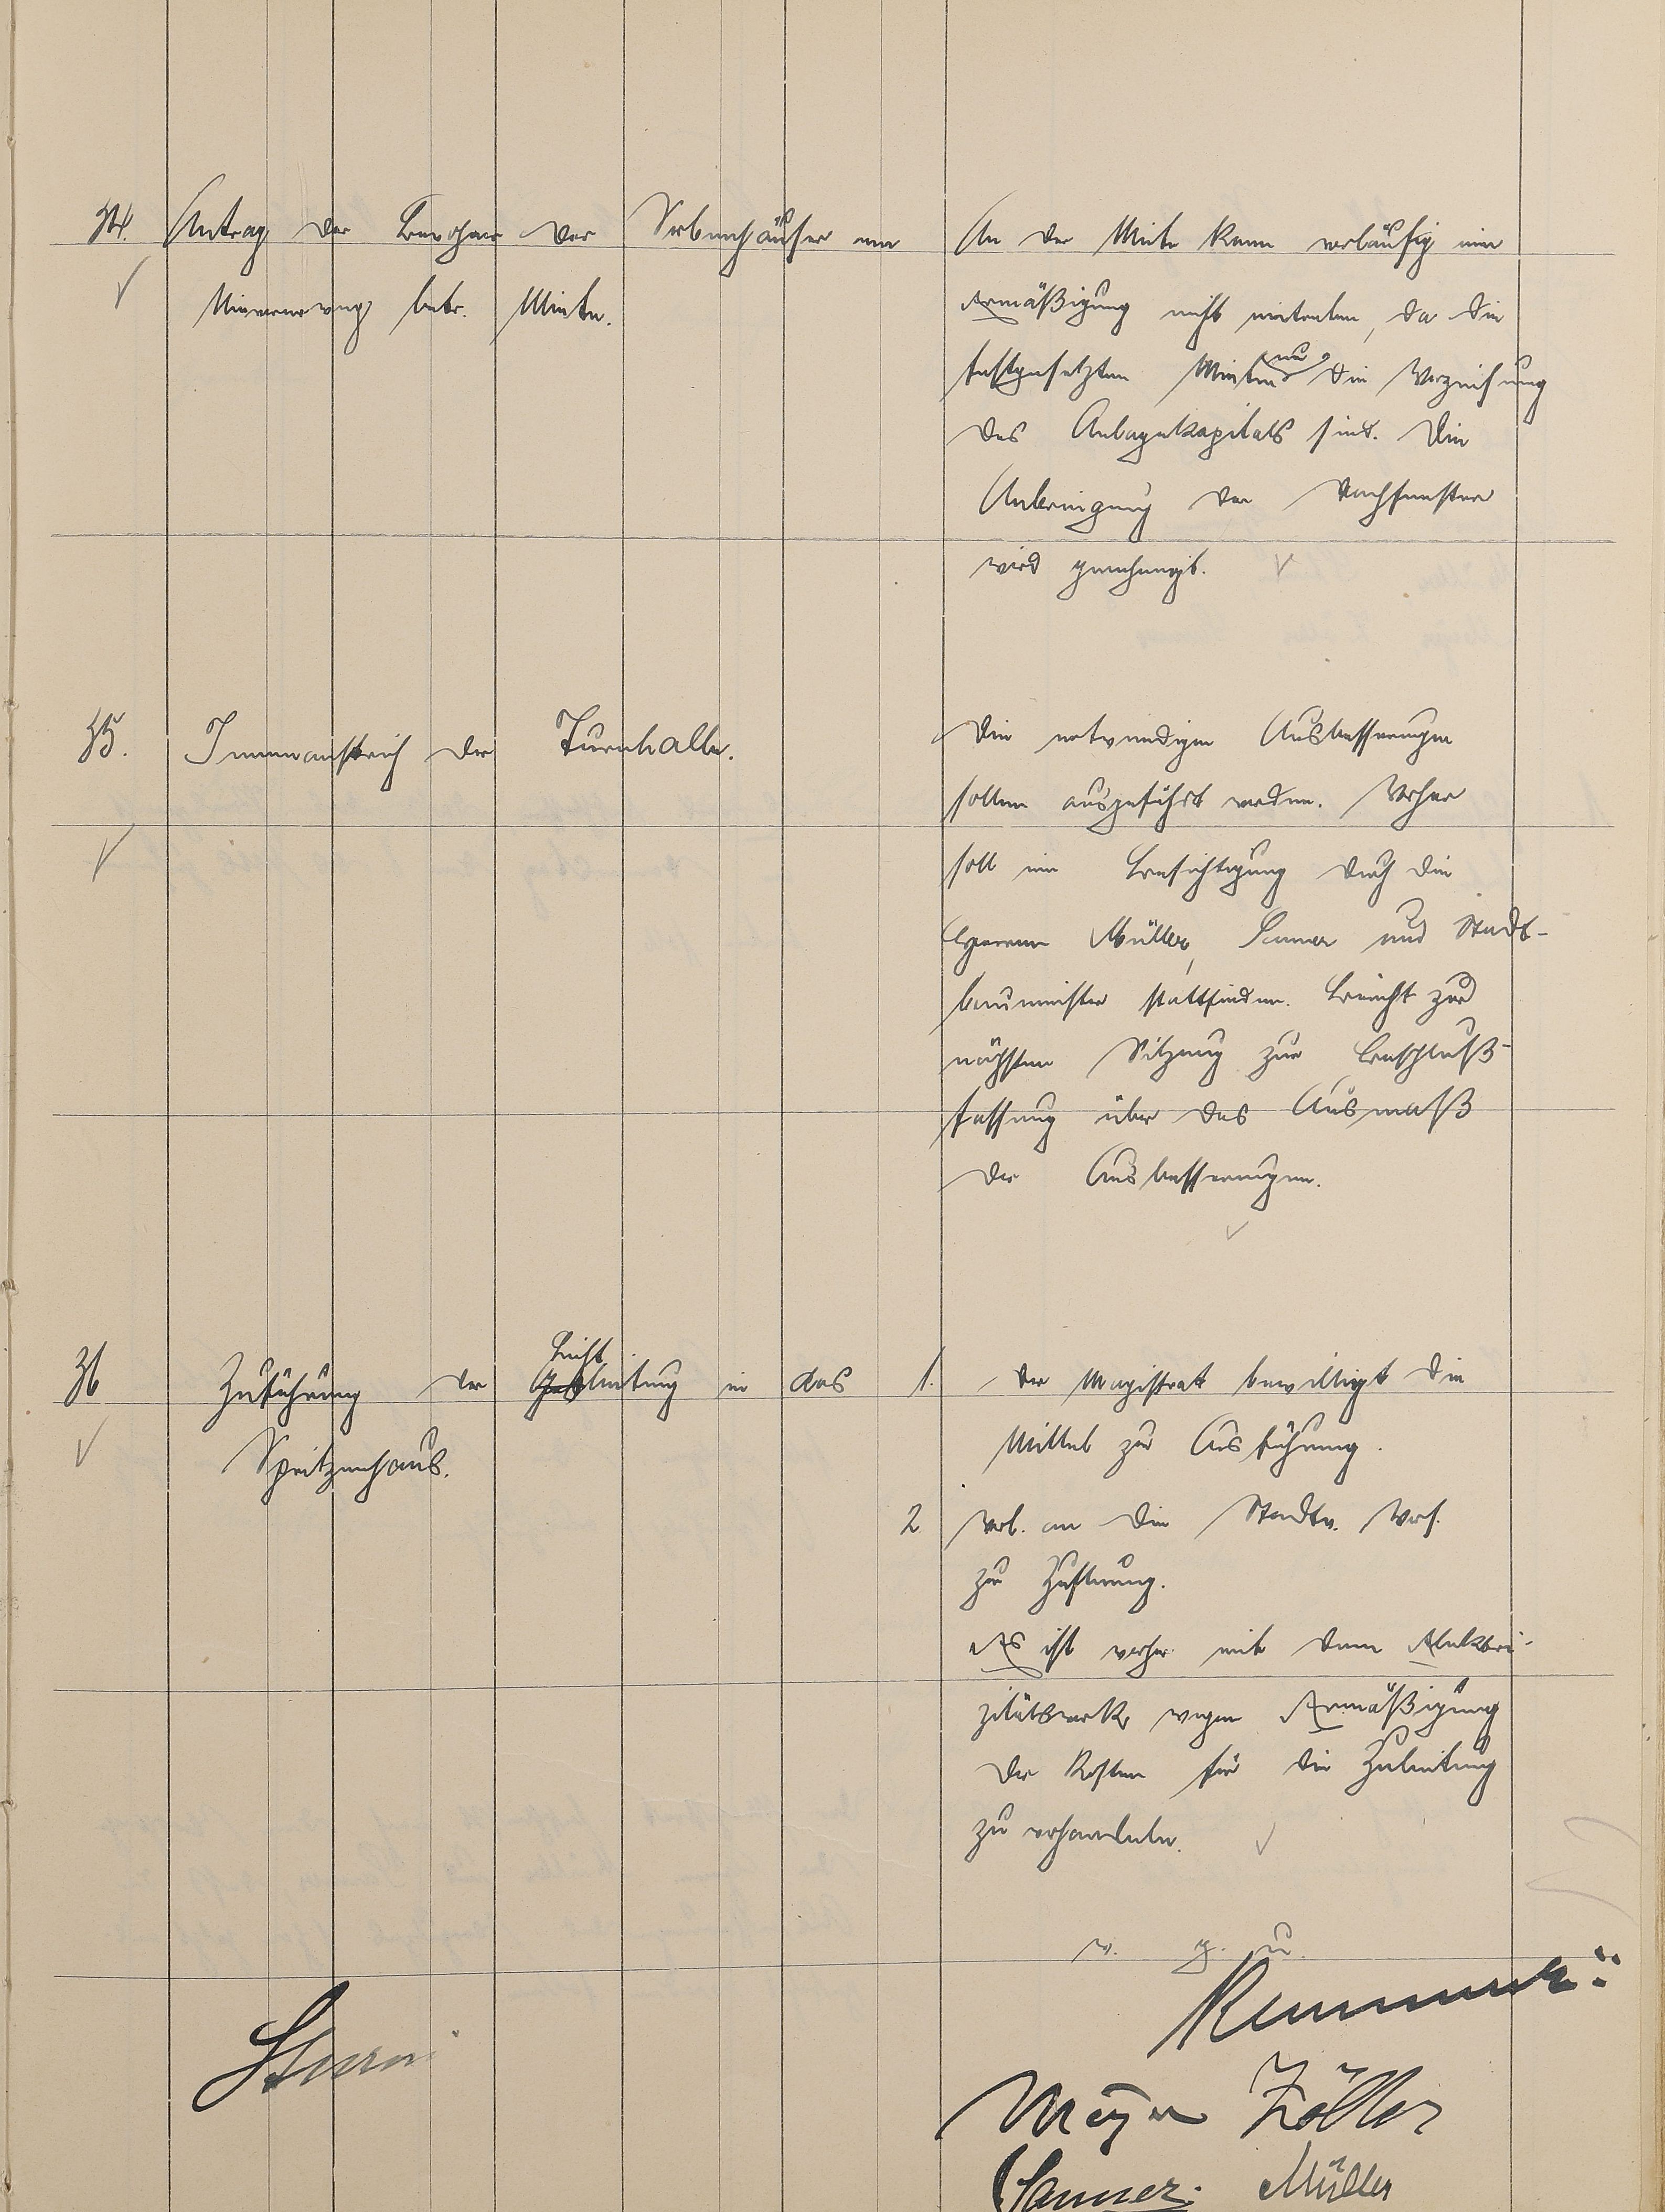 34. Antrag der Bewohner der Siebenhäuser um
Minderung betr. Miete.
An der Miete kann vorläufig eine
Ermäßigung nicht eintreten, da die
festgesetzten Mieten nur die Verzinsung
des Anlagekapitals sind. Die
Anbringung der Dachfenster
wird genehmigt.
35. Innenanstrich der Turnhalle.
Die notwendigen Ausbesserungen
sollen ausgeführt werden. Vorher
soll eine Besichtigung durch die
Herren Müller, Sauer und Stadt-
baumeister stattfinden. Bericht zur
nächsten Sitzung zur Beschluß-
fassung über das Ausmaß
der Ausbesserungen.
36 Zuführung der Lichtleitung in das
Spritzenhaus.
1. Der Magistrat bewilligt die
Mittel zur Ausführung.
2 Vorl. an die Stadtv. Vers.
zur Zustimmung.
Es ist vorher mit dem Elektri-
zitätswerk wegen Ermäßigung
der Kosten für die Zuleitung
zu verhandeln.
v. g. u.
Meyer Zöller
Müller